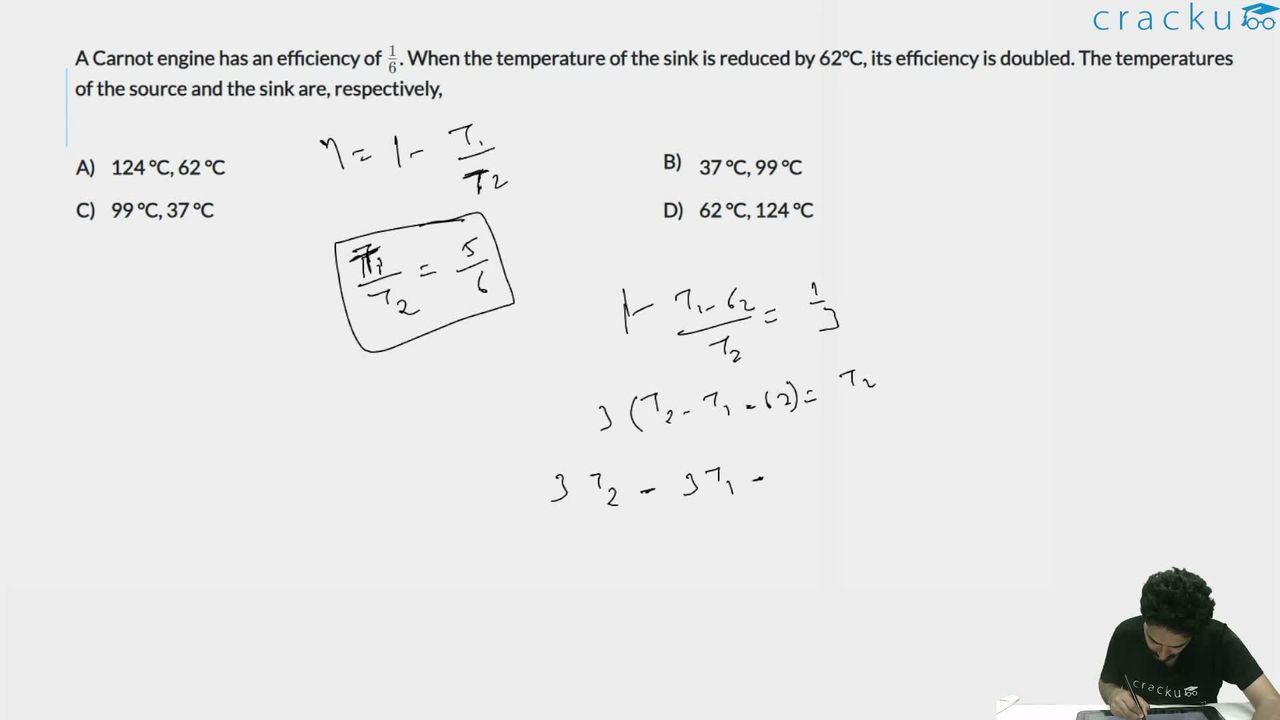 cracku
A Carnot engine has an efficiency of 1/6. When the temperature of the sink is reduced by 62°C, its efficiency is doubled. The temperatures
of the source and the sink are, respectively,
A) 124 °C, 62 °C
B) 37 °C, 99 °C
C) 99 °C, 37 °C
D) 62 °C, 124 °C
η = 1 - T₁/T₂
T₁/T₂ = 5/6
1 - (T₁ - 62)/T₂ = 1/3
3 (T₂ - T₁ - 62) = T₂
3 T₂ - 3T₁ -
cracku